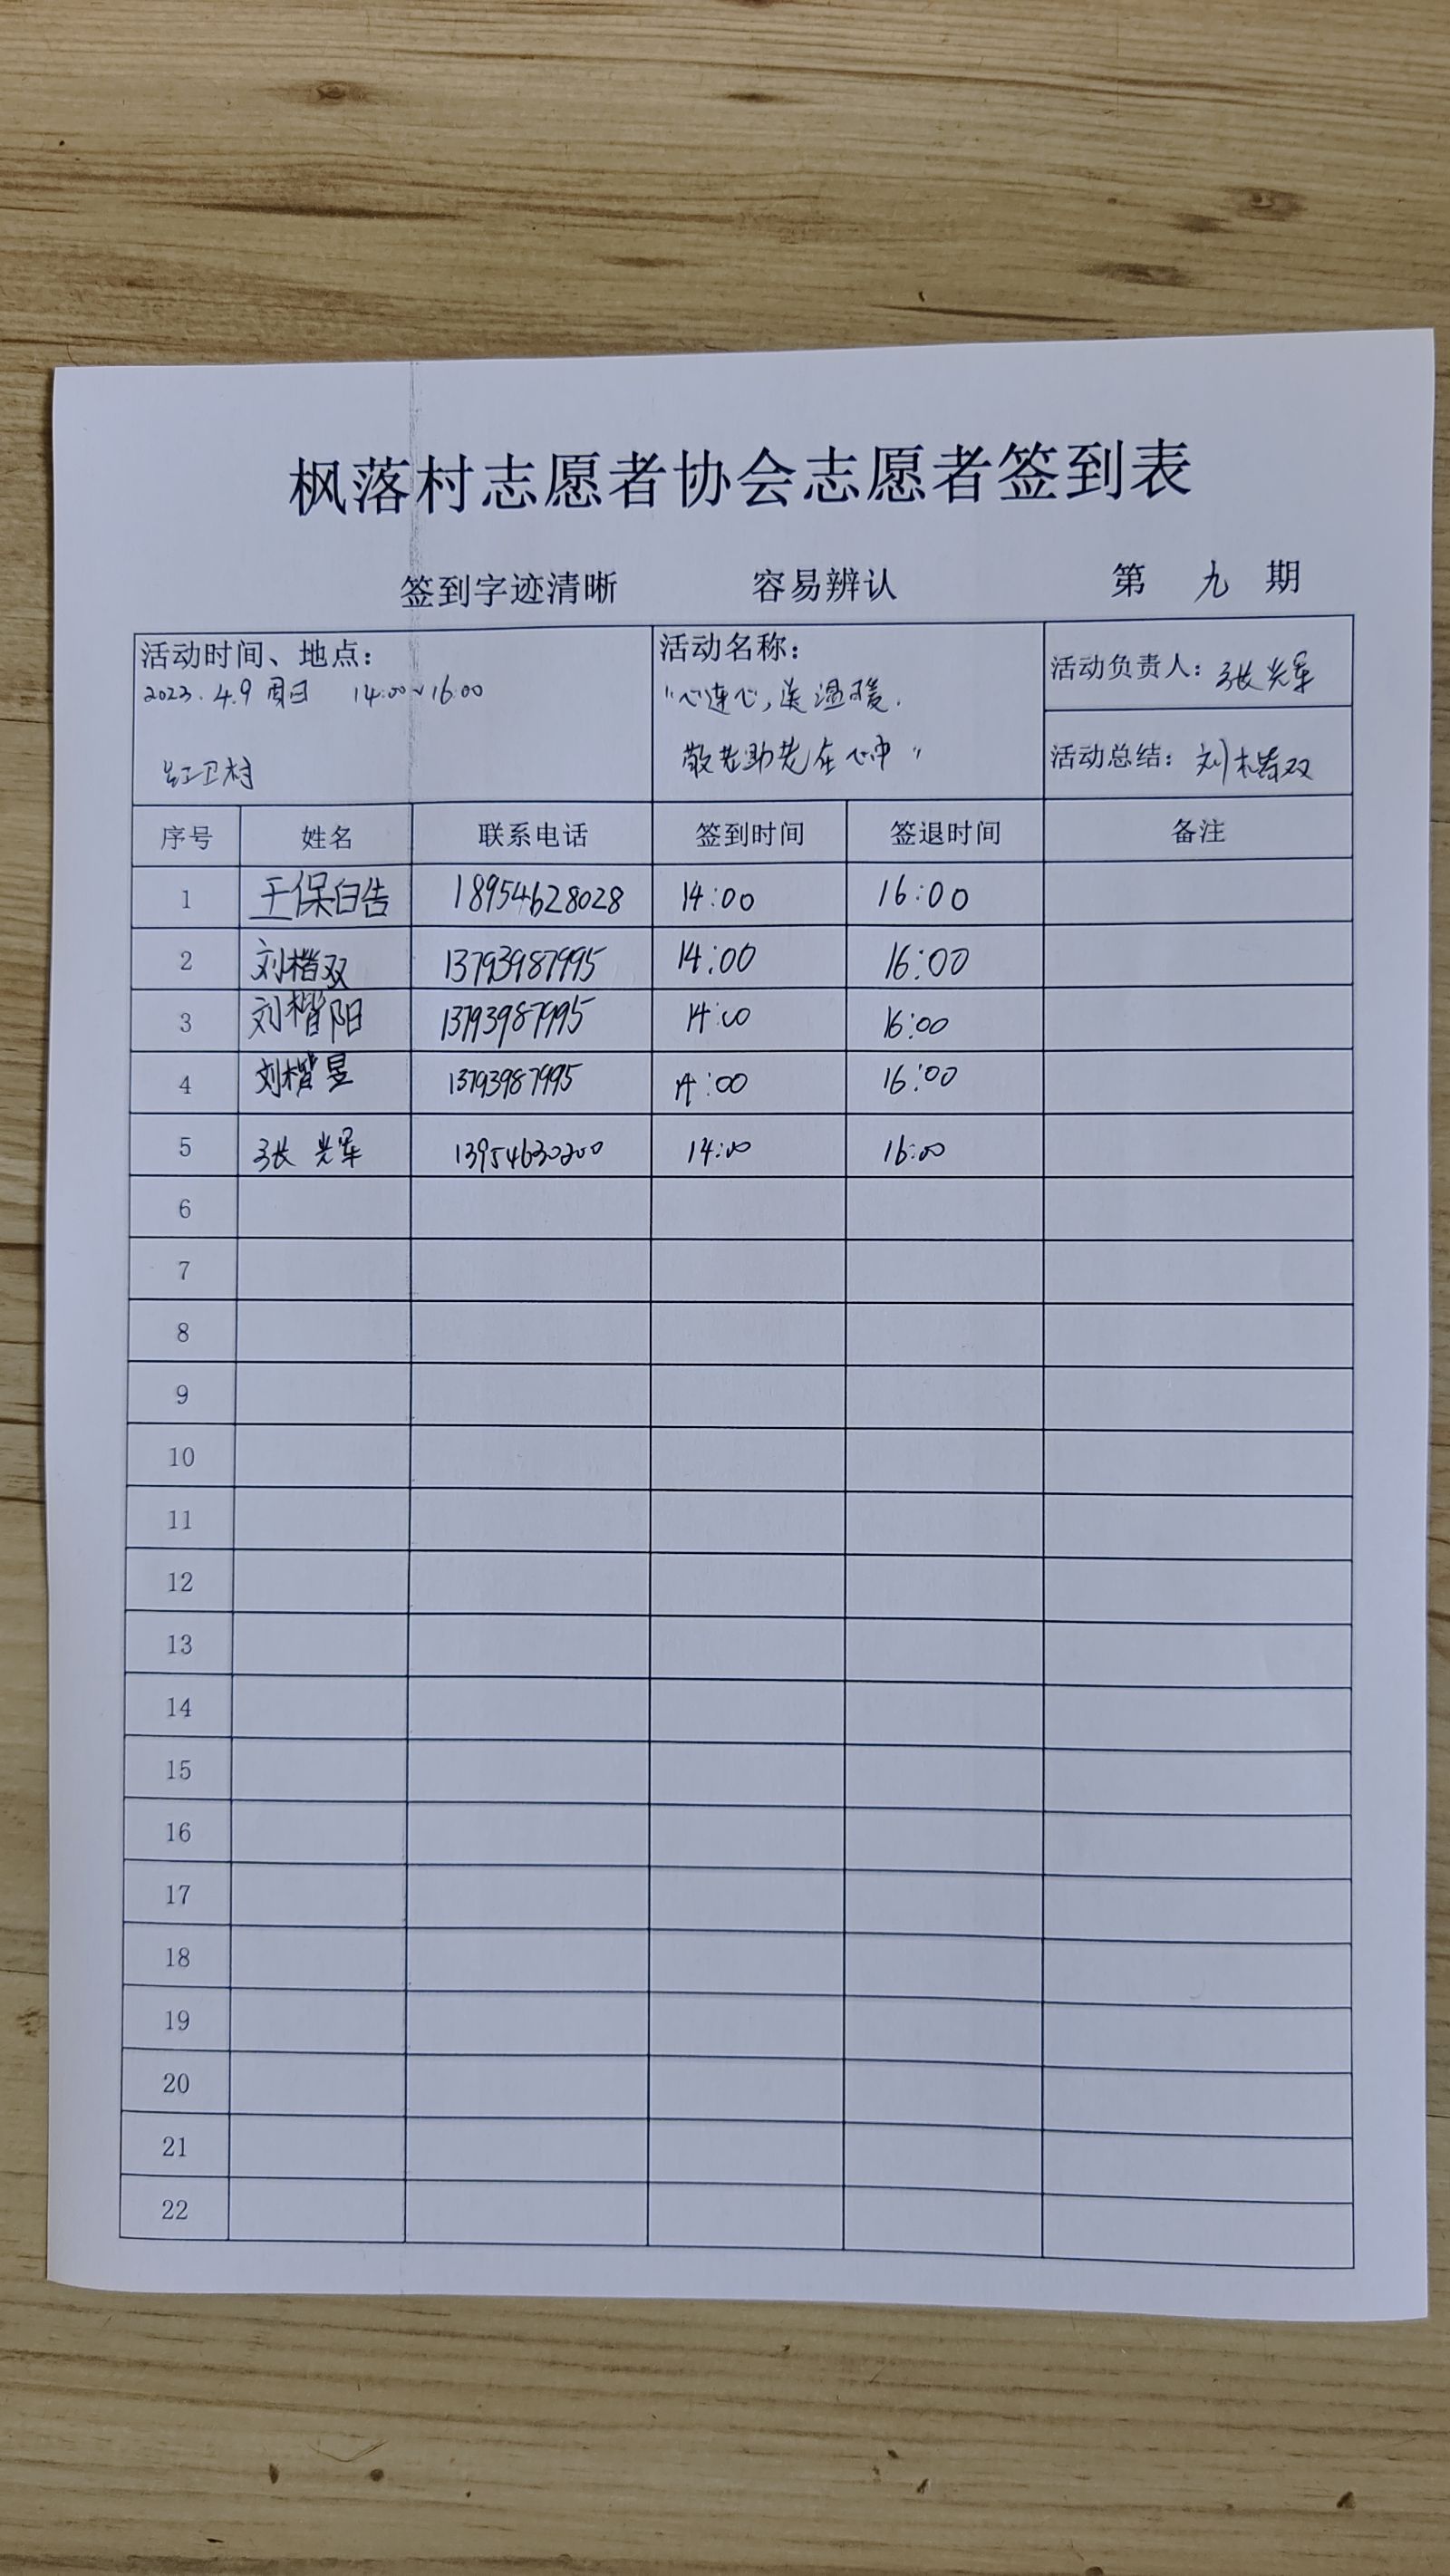 枫落村志愿者协会志愿者签到表
签到字迹清晰 容易辨认 第 九 期
活动时间、地点：
2023.4.9 周日 14:00~16:00
红卫村
活动名称：
“心连心，送温暖.
敬老助老在心中”
活动负责人：张光军
活动总结：刘楷双
序号 姓名 联系电话 签到时间 签退时间 备注
1 王保皓 18954628028 14:00 16:00
2 刘楷双 13793987995 14:00 16:00
3 刘楷阳 13793987995 14:00 16:00
4 刘楷昱 13793987995 14:00 16:00
5 张光军 13954630200 14:00 16:00
6
7
8
9
10
11
12
13
14
15
16
17
18
19
20
21
22